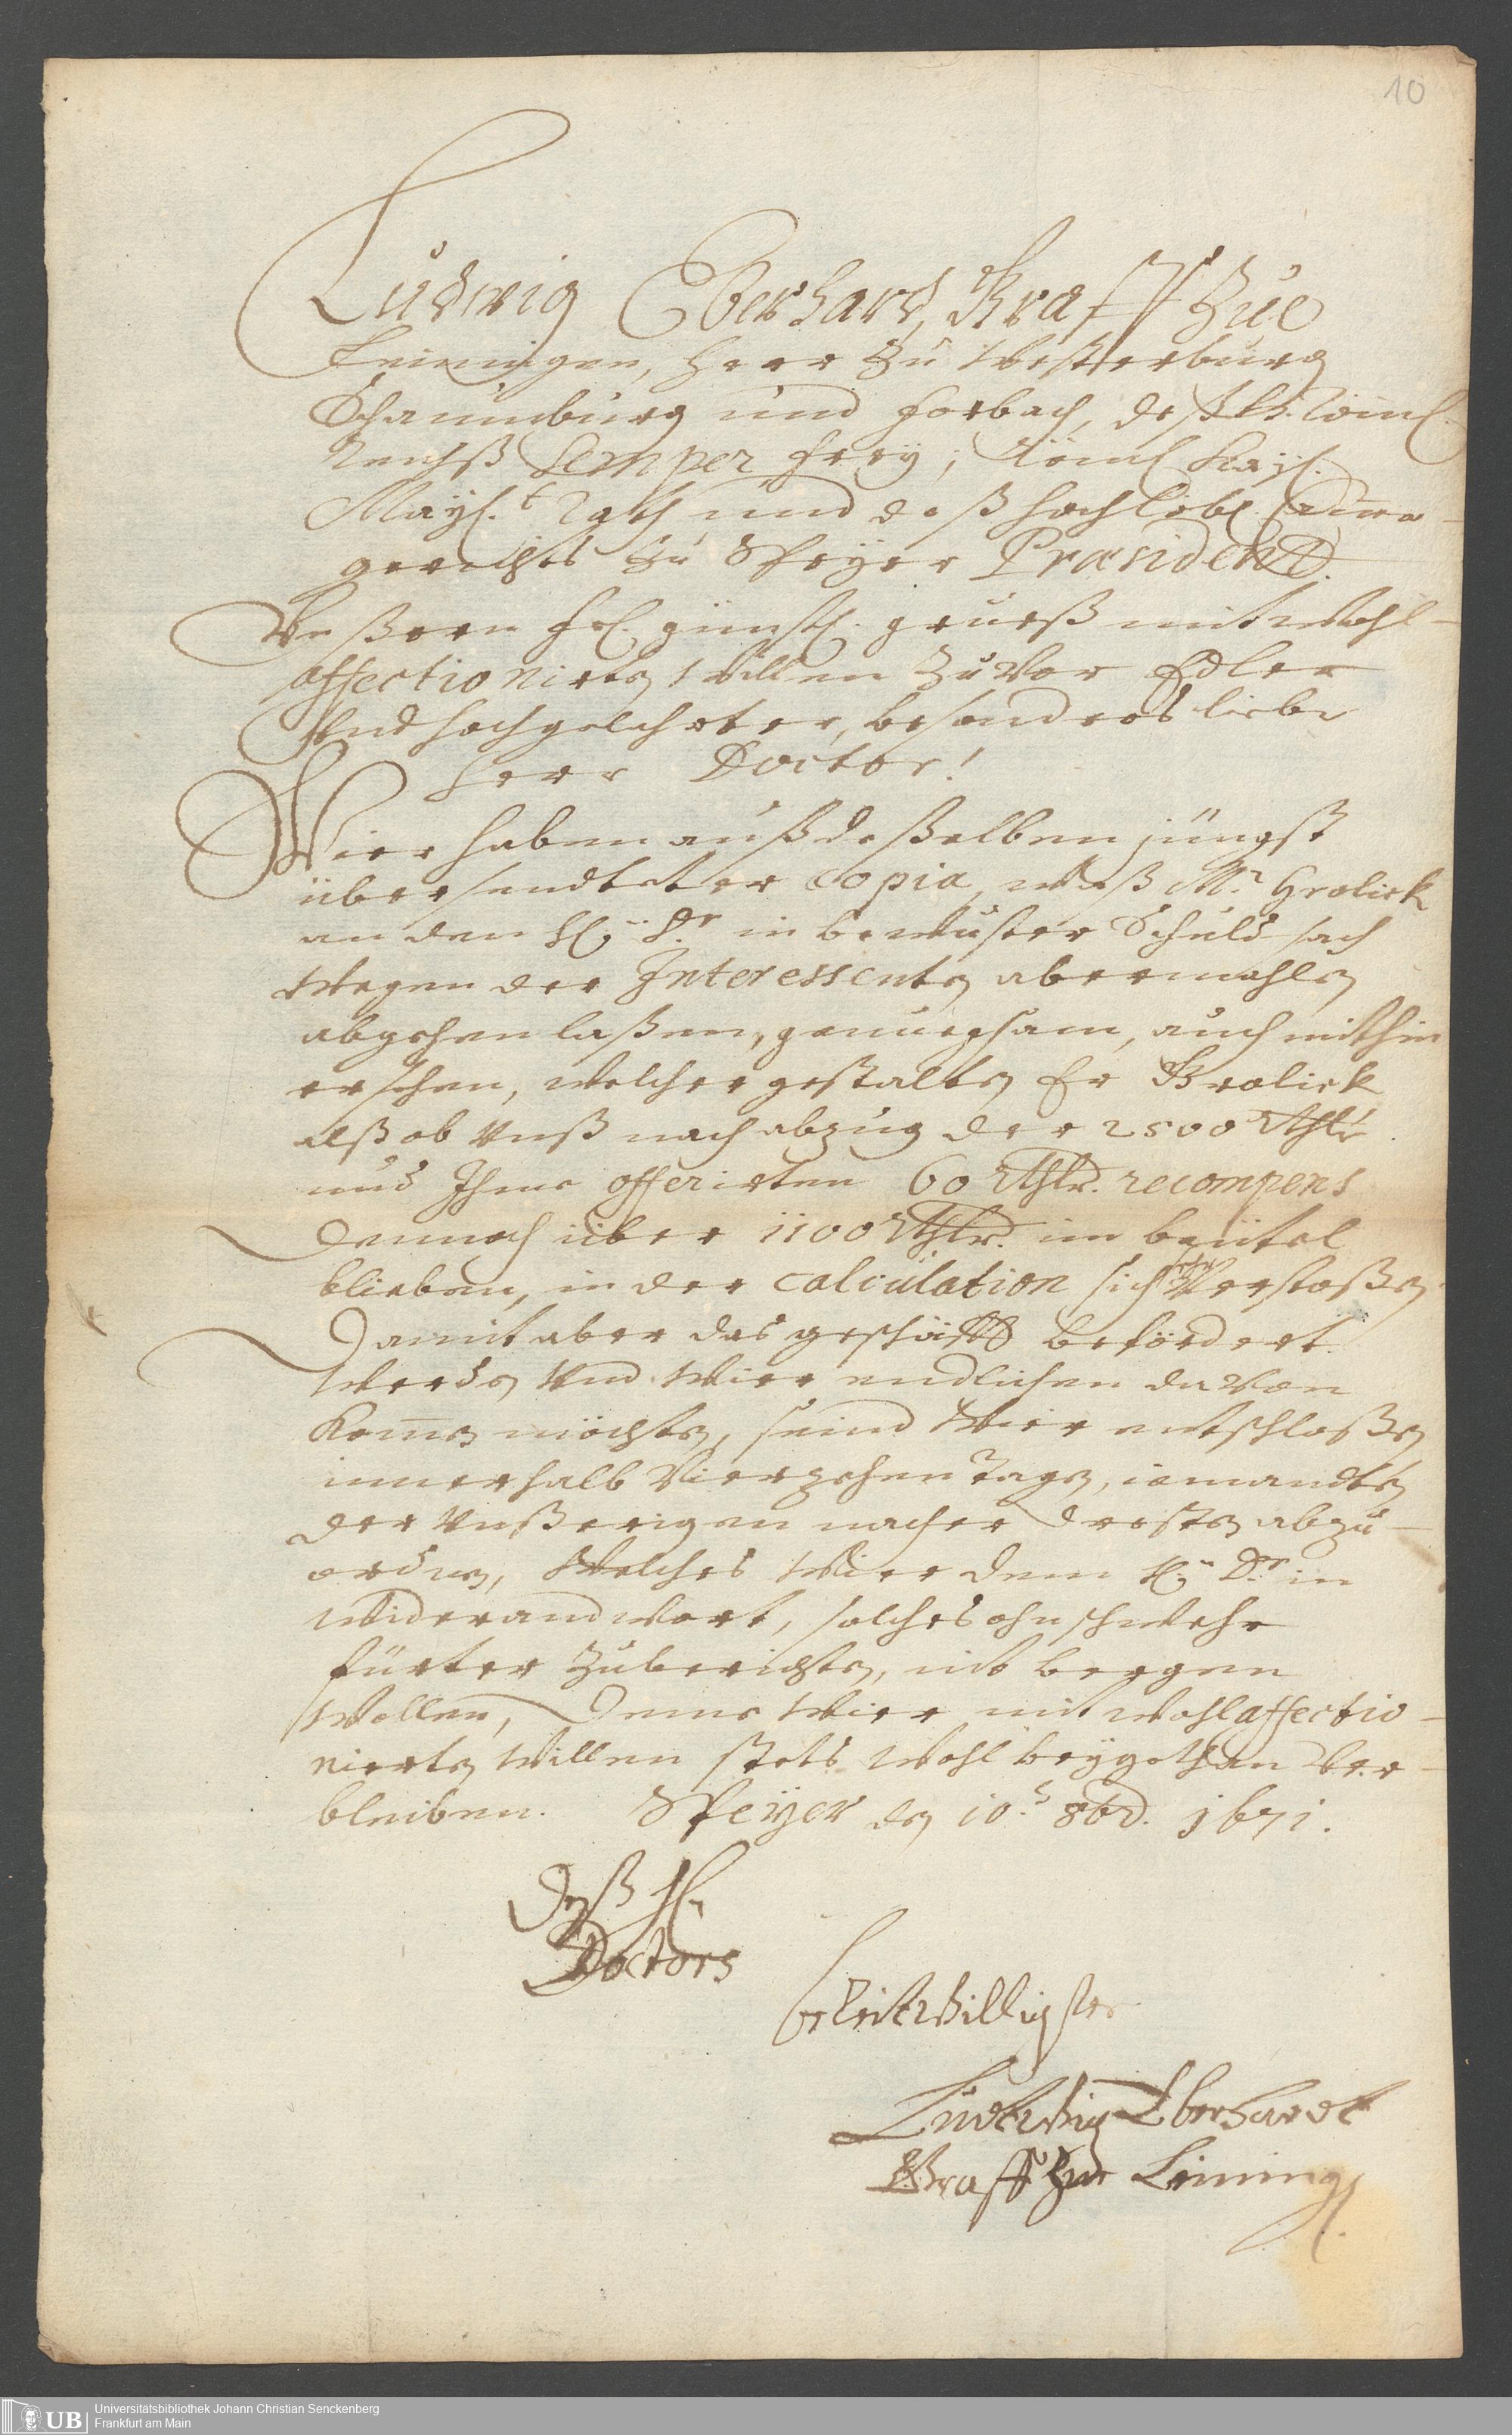 10
Ludwig Eberhard, Graff Zue
Leiningen, Herr Zu Westerburg
Schaumburg und Forbach, deß H. Röml.
Reichß Semper Frey; Röml Kayl.
Mayl.t Rath und deß hochlöbl. Camer-
gerichts Zu Speyer Præsident.
Unßern frl. günstl. grueß mit wohl-
affectionirtem willen Zuvor Edler
Und hochgelehrter, besonders lieber
Herr Doctor!
Wier haben auß deßelben jüngst
übersendteter copia, waß Mr. Grolick
an den H. Dr. in bewuster Schuld sach
wegen der Interessenten abermahlen
abgehen laßen, genuegsam, auch mithin
ersehen, welcher gestalten Er Grolick
alß ob Unß nach abzug der 2500 Rthlr.
und Ihme offerirten 60 Rthlr. recompens
dennoch über 1100 Rthlr. im beütel
blieben, in der calculation sich verstoßen.
Damit aber das geschäfft befördert
werden Und Wier endlichen davon
kommen möchten, seind Wier entschloßen
innerhalb Vierzehen Tagen, iemandten
der Unßerigen nacher abzu-
ordnen, Welches Wier dem H. Dr. in
widerandwort, solches ohnschwehr
fürter Zuberichten, nit bergen
wollen, Deme Wier mit wohlaffectio-
nirten willen stets wohl beygethan ver-
bleiben. Speyer den 10. 8br. 1671.
Deß H.
Doctors
Ludtwig Eberhardt
Graff zue Leiningen
UB
Universitätsbibliothek Johann Christian Senckenberg
Frankfurt am Main